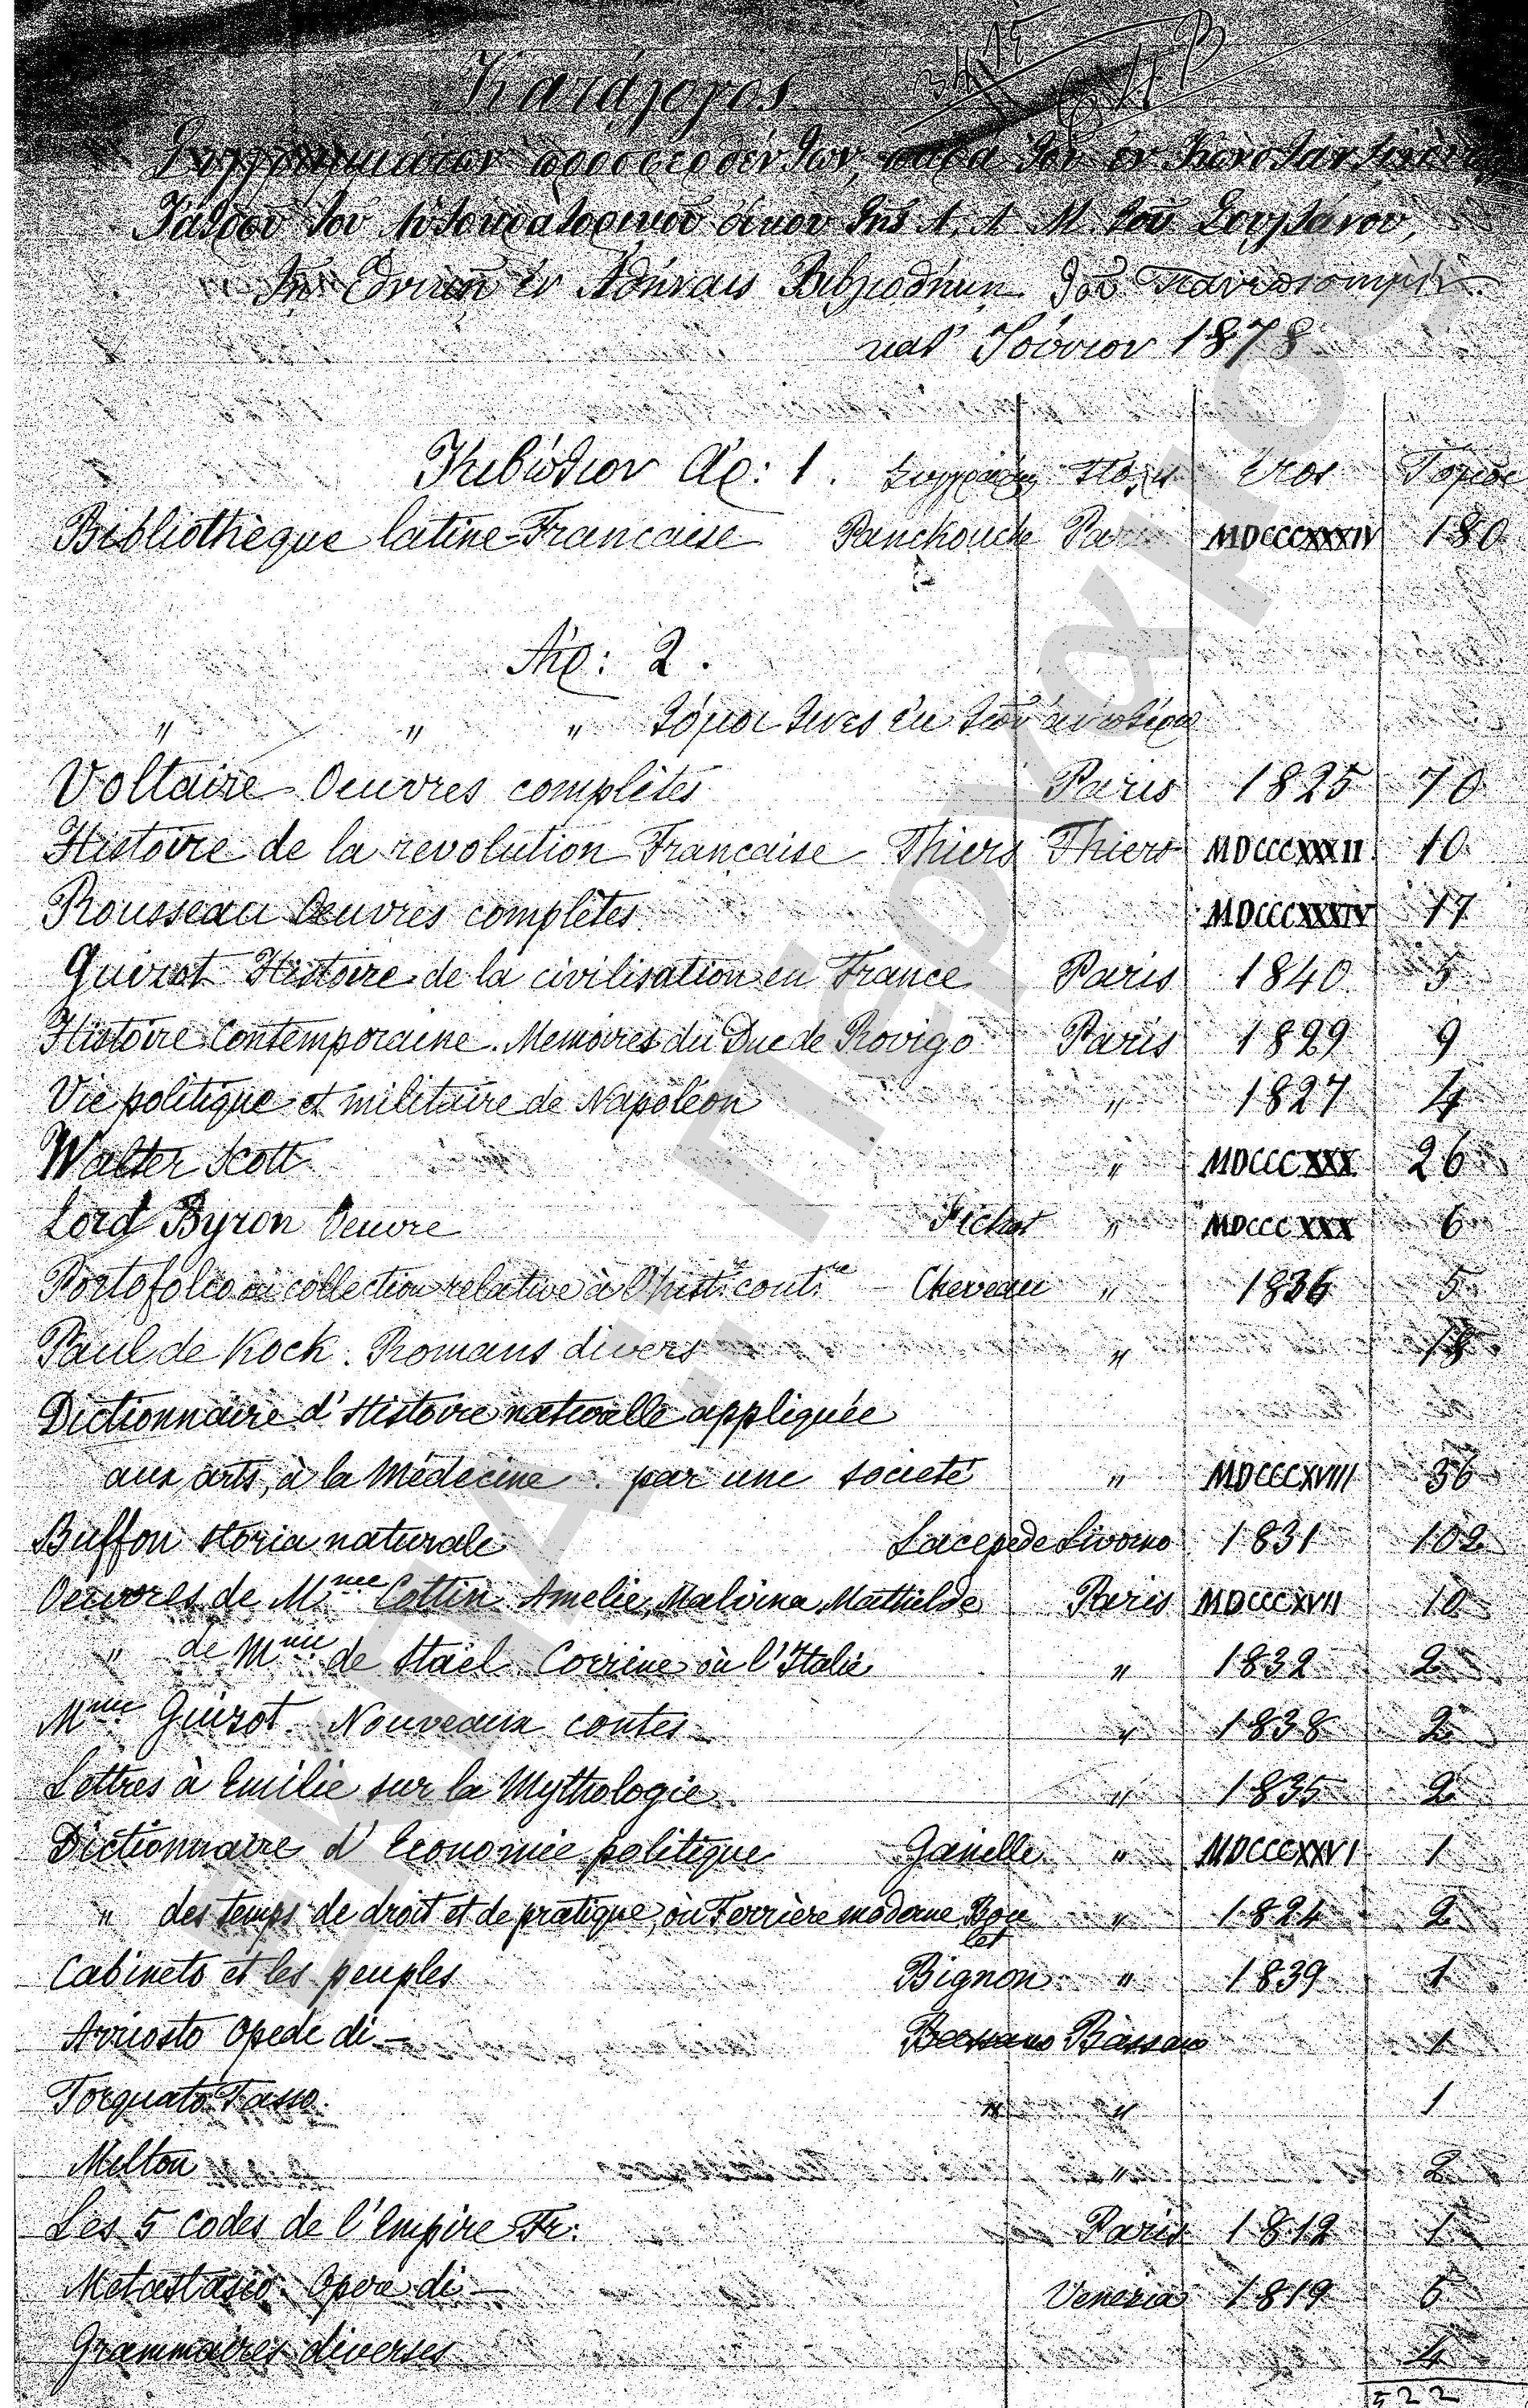 Κατάλογος
Συγγραμμάτων προσφερθέντων, παρὰ τοῦ ἐν Κωνσταντινουπόλει
Ἰατροῦ τοῦ Αὐτοκρατορικοῦ οἴκου τῆς Α. Α. Μ. τοῦ Σουλτάνου,
Τῇ Ἐθνικῇ ἐν Ἀθήναις Βιβλιοθήκῃ τοῦ Πανεπιστημίου
κατ' Ἰούνιον 1878
Κιβώτιον Ἀρ: 1. Συγγραφεὺς Πόλις Ἔτος Τόμοι
Bibliothèque latine-Francaise Panckoucke Paris MDCCCXXXIV 180
Ἀρ: 2.
" " " τόμοι τινες ἐκ τῶν ἀνωτέρω
Voltaire Oeuvres complètes Paris 1825 70
Histoire de la revolution Francaise Thiers Thiers MDCCCXXXII 10
Rousseau Oeuvres complètes MDCCCXXXIV 17
Guizot Histoire de la civilisation en France Paris 1840 5
Histoire Contemporaine. Memoires du Duc de Rovigo Paris 1829 9
Vie politique et militaire de Napoléon " 1827 4
Walter Scott " MDCCCXXX 26
Lord Byron Oeuvre Pichot " MDCCCXXX 6
Portofolio ou collection relative à l'hist.re cont.re - Cheveau " 1836 5
Paul de Kock. Romans divers " 18
Dictionnaire d'Histoire naturelle appliquée
aux arts, à la Médecine. par une societé " MDCCCXVIII 36
Buffon storia naturale Lacepede Livorno 1831 102
Oeuvres de Mme Cottin Amelie, Malvina, Mathilde Paris MDCCCXVII 10
" de Mme de Stael Corrine ou l'Italie " 1832 2
Mme Guizot Nouveaux contes " 1838 2
Lettres à Emilie sur la Mythologie " 1835 2
Dictionnaire d'Economie politique Ganelle " MDCCCXXVI 1
" des temps de droit et de pratique, où Ferrière moderne Bou " 1824 2
let
Cabinets et les peuples Bignon " 1839 1
Arriosto Opede di — Bassano Bassano 1
Torquato Tasso. " " 1
Milton " 2
Les 5 Codes de l'Empire Fr: Paris 1812 1
Metastasio. Opera di — Venezia 1819 5
Grammaires diverses 4
522